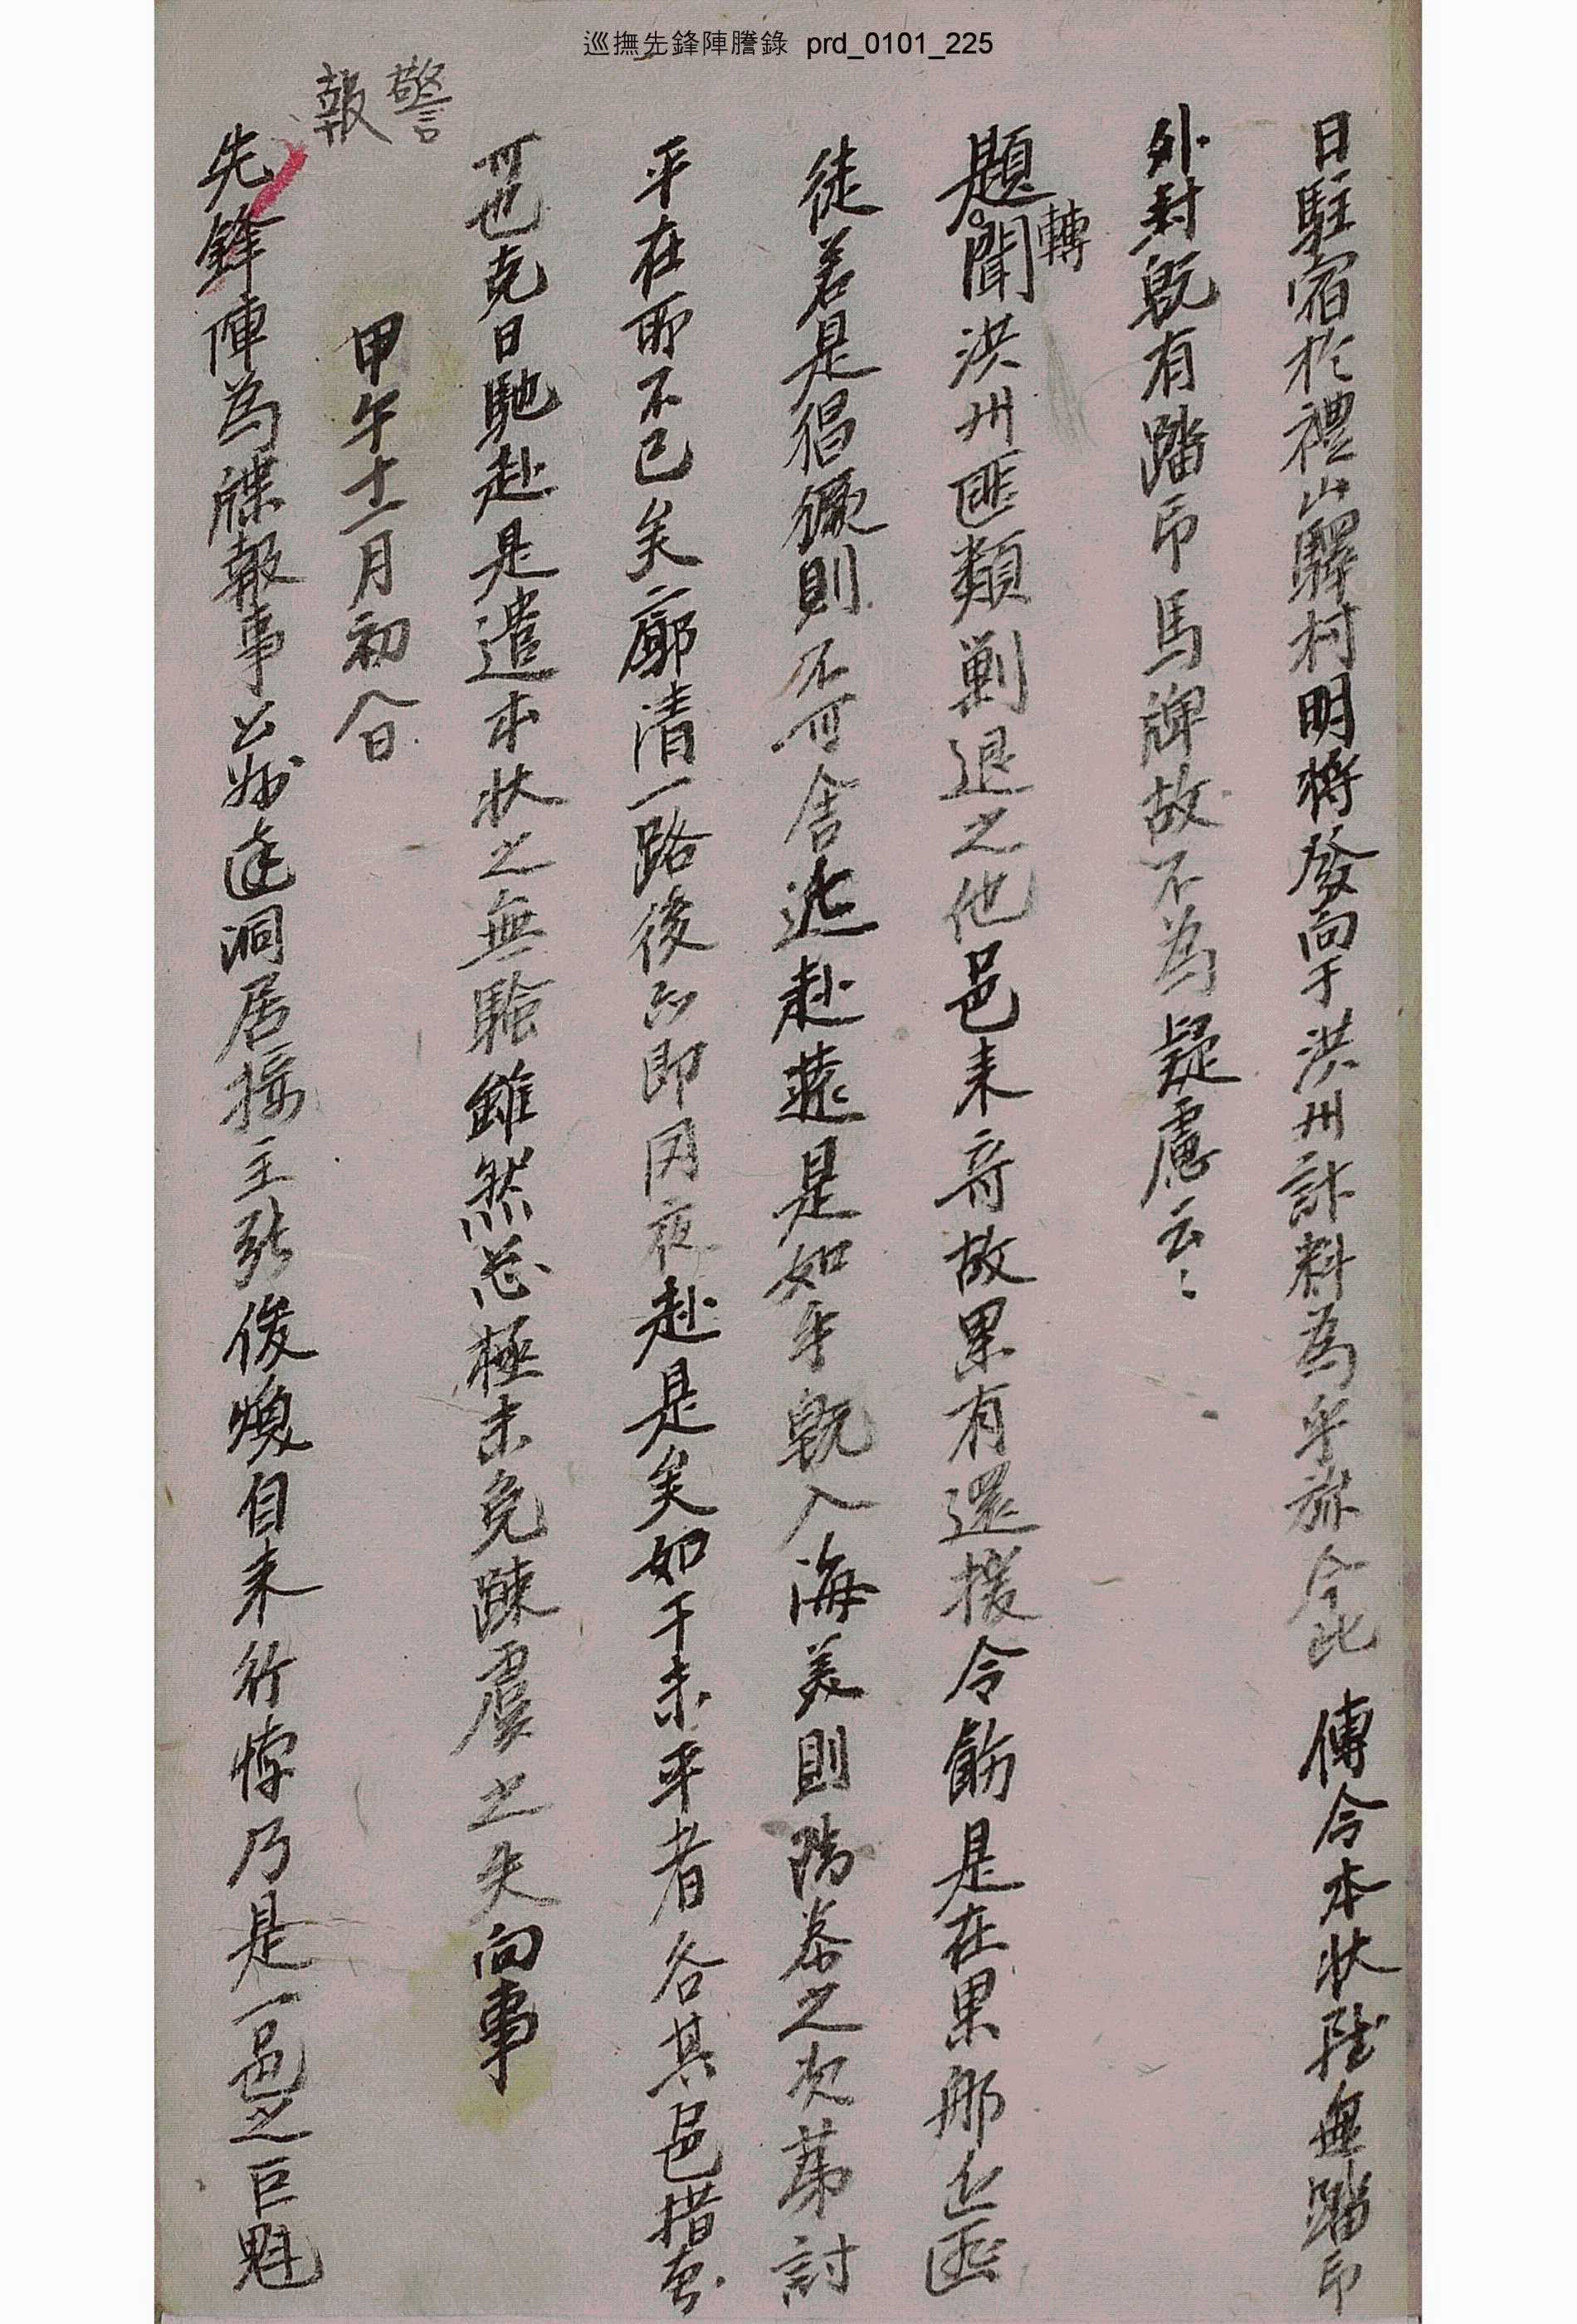 巡撫先鋒陣謄錄 prd_0101_225
日駐宿於禮山驛村明將發向于洪州計料爲乎旀今此 傳令本狀雖無踏印
外封旣有踏印馬牌故不爲疑慮云〻
題轉聞洪州匪類剿退之他邑未奇故果有還援令飭是在果那邊匪
徒若是猖獗則不可舍遠赴是如乎旣入海美則隨參之次第討
平在所不已矣廓清一路後卽因夜赴是矣如干未平者各其邑措劃
可也克日馳赴是遣本狀之無驗雖然忩極未免疎虞之失向事
甲午十一月初八日
警報
先鋒陣爲牒報事公州達洞居接主張俊煥自來行悖乃是一邑之巨魁